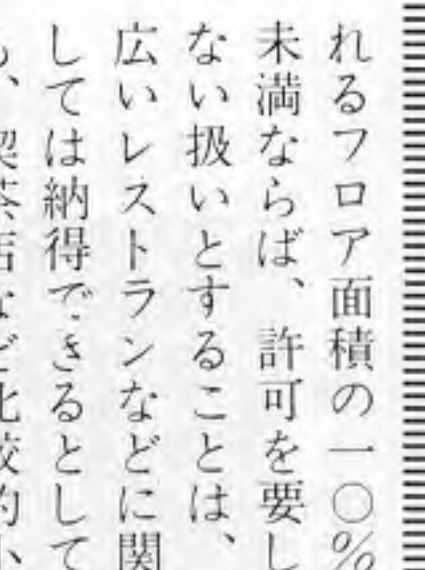 れるフロア面積の一〇%
未満ならば、許可を要し
ない扱いとすることは、
広いレストランなどに関
しては納得できるとして
も、喫茶店など比較的小